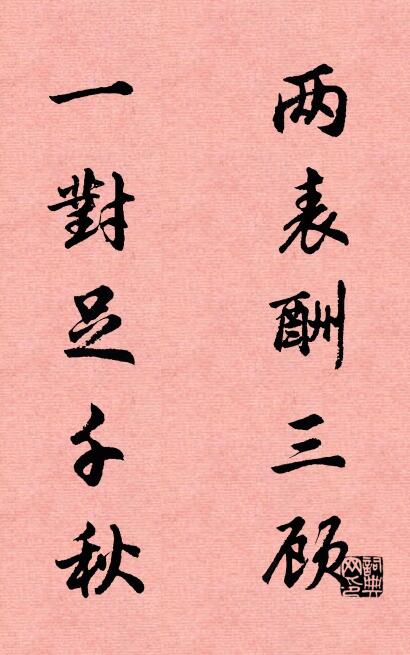 两表酬三顾
一對足千秋
詞典网